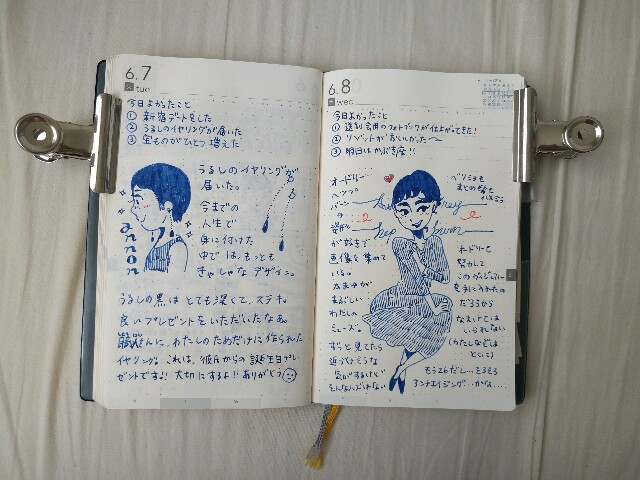 6.7
火 tue
今日よかったこと
① 新宿デートをした
② うるしのイヤリングが届いた
③ 宝ものがひとつ増えた
うるしのイヤリングが
届いた。
今までの
人生で
身に付けた
中では、もっとも
きゃしゃなデザイン。
annon
うるしの黒はとても深くて、ステキ。
良いプレゼントをいただいたなあ。
さんに、わたしのためだけに作られた
イヤリング。これは、彼氏からの誕生日プレ
ゼントです!! 大切にするよ!! ありがとう
6.8
水 wed
今日よかったこと
① 還別会用のフォトブックが仕上がってきた!
② リゾットがおいしかった〜
③ 明日はかぶき座!!
オードリー
ヘップ
バーン
の
姿形
が好きで
画像を集めて
いる。
たまきが
まぶしい
わたしの
ミューズ。
ずっと見てたら
近づけそうな
気がするけど
そんなハズはない
Audrey
Hepburn
ベリショも
まとめ髪も
似合う
オードリーも
努力して
このヴィジュアル
を手に入れたの
だろうから
なまけては
いられない
(わたしなどは
とくに)
もう26だし…そろそろ
アンチエイジング…かな….